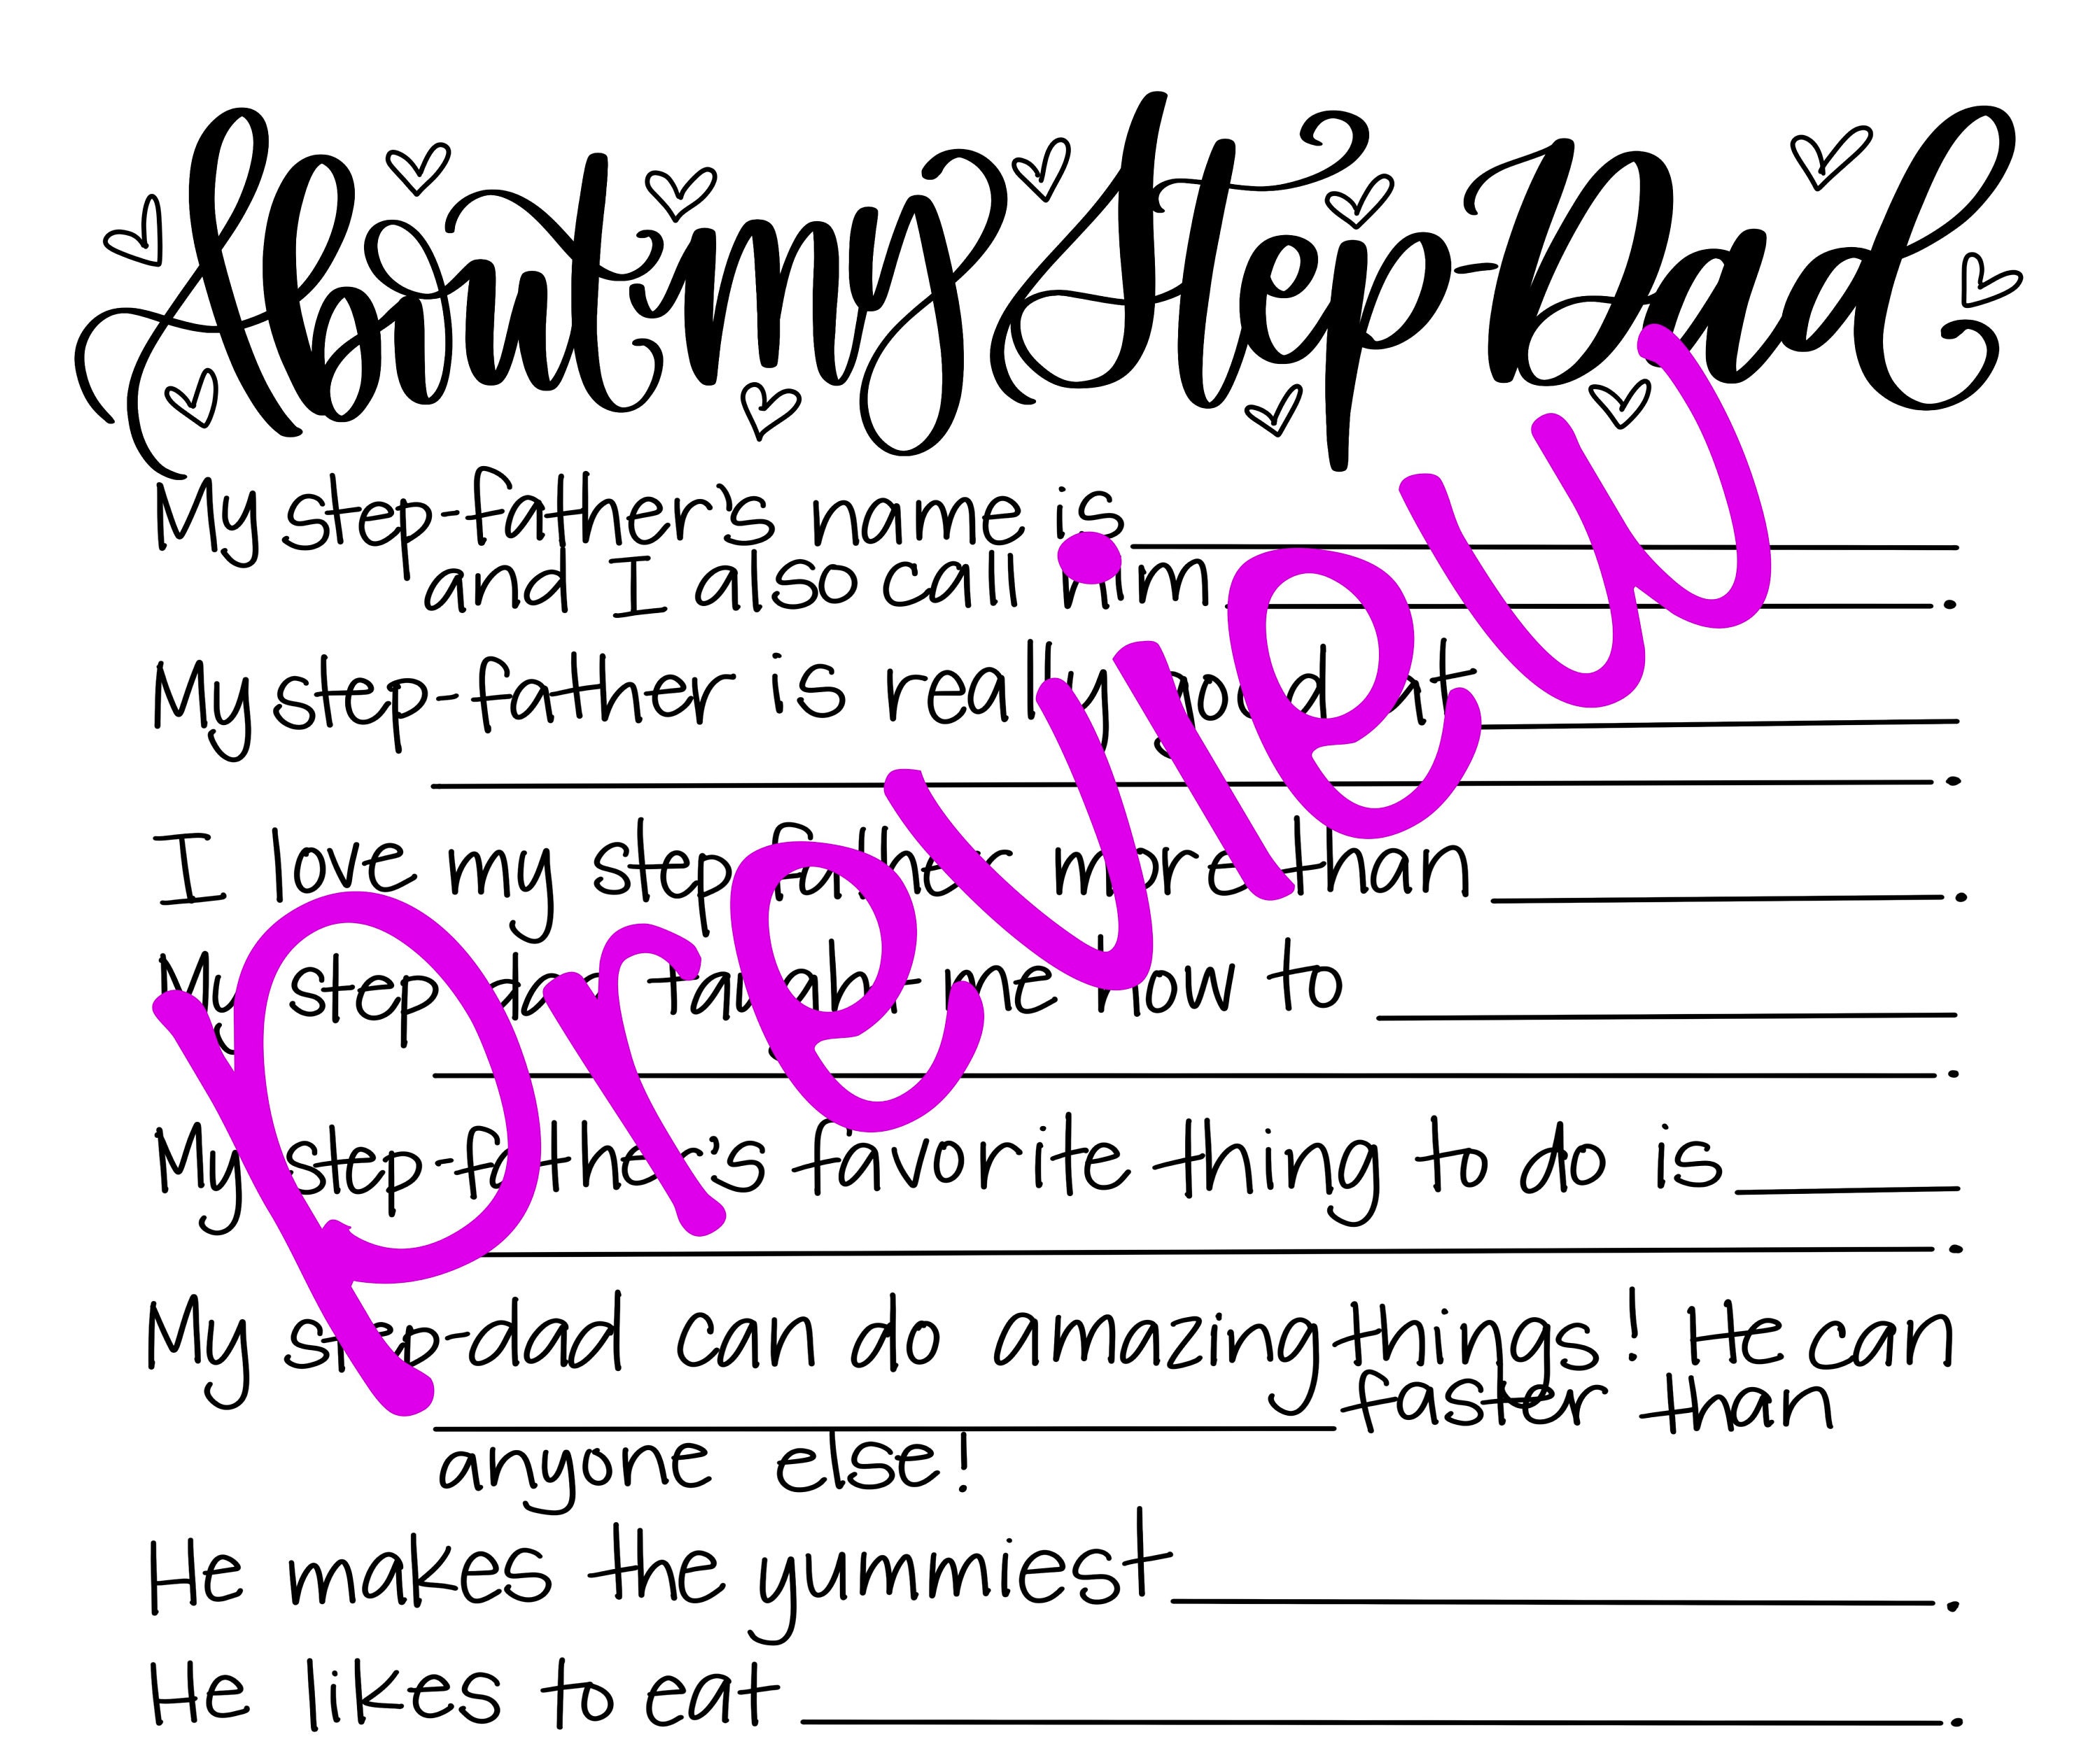 About my Step-Dad
My step-father's name is
and I also call him .
My step-father is really good at
.
I love my step-father more than .
My step-dad taught me how to
.
My step-father's favorite thing to do is
.
My step-dad can do amazing things! He can
faster than
anyone else!
He makes the yummiest .
He likes to eat .
Preview